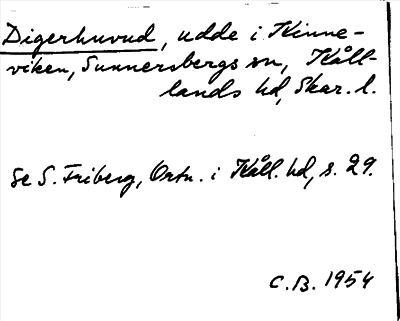 Digerhuvud, udde i Kinne-
viken, Sunnersbergs sn, Kåll-
lands hd, Skar. l.
Se S. Friberg, Ortn. i Kåll. hd, s. 29.
C.B. 1954